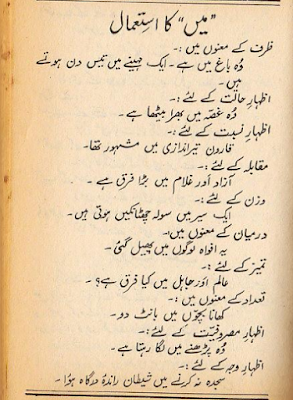 "میں" کا استعمال
ظرف کے معنوں میں :۔
وُہ باغ میں ہے۔ ایک مہینے میں تیس دن ہوتے
ہیں۔
اظہارِ حالت کے لئے :۔
وُہ غصّہ میں بھرا بیٹھا ہے۔
اظہارِ نسبت کے لئے :۔
قارون تیراندازی میں مشہور تھا۔
مقابلہ کے لئے :۔
آزاد اور غلام میں بڑا فرق ہے۔
وزن کے لئے :۔
ایک سیر میں سولہ چھٹانکیں ہوتی ہیں۔
درمیان کے معنوں میں :۔
یہ افواہ لوگوں میں پھیل گئی۔
تمیز کے لئے :۔
عالم اور جاہل میں کیا فرق ہے؟
تعداد کے معنوں میں :۔
کھانا بچّوں میں بانٹ دو۔
اظہارِ مصروفیّت کے لئے :۔
وُہ پڑھنے میں لگا رہتا ہے۔
اظہارِ وجہ کے لئے :۔
سجدہ نہ کرنے میں شیطان راندۂ درگاہ ہؤا۔